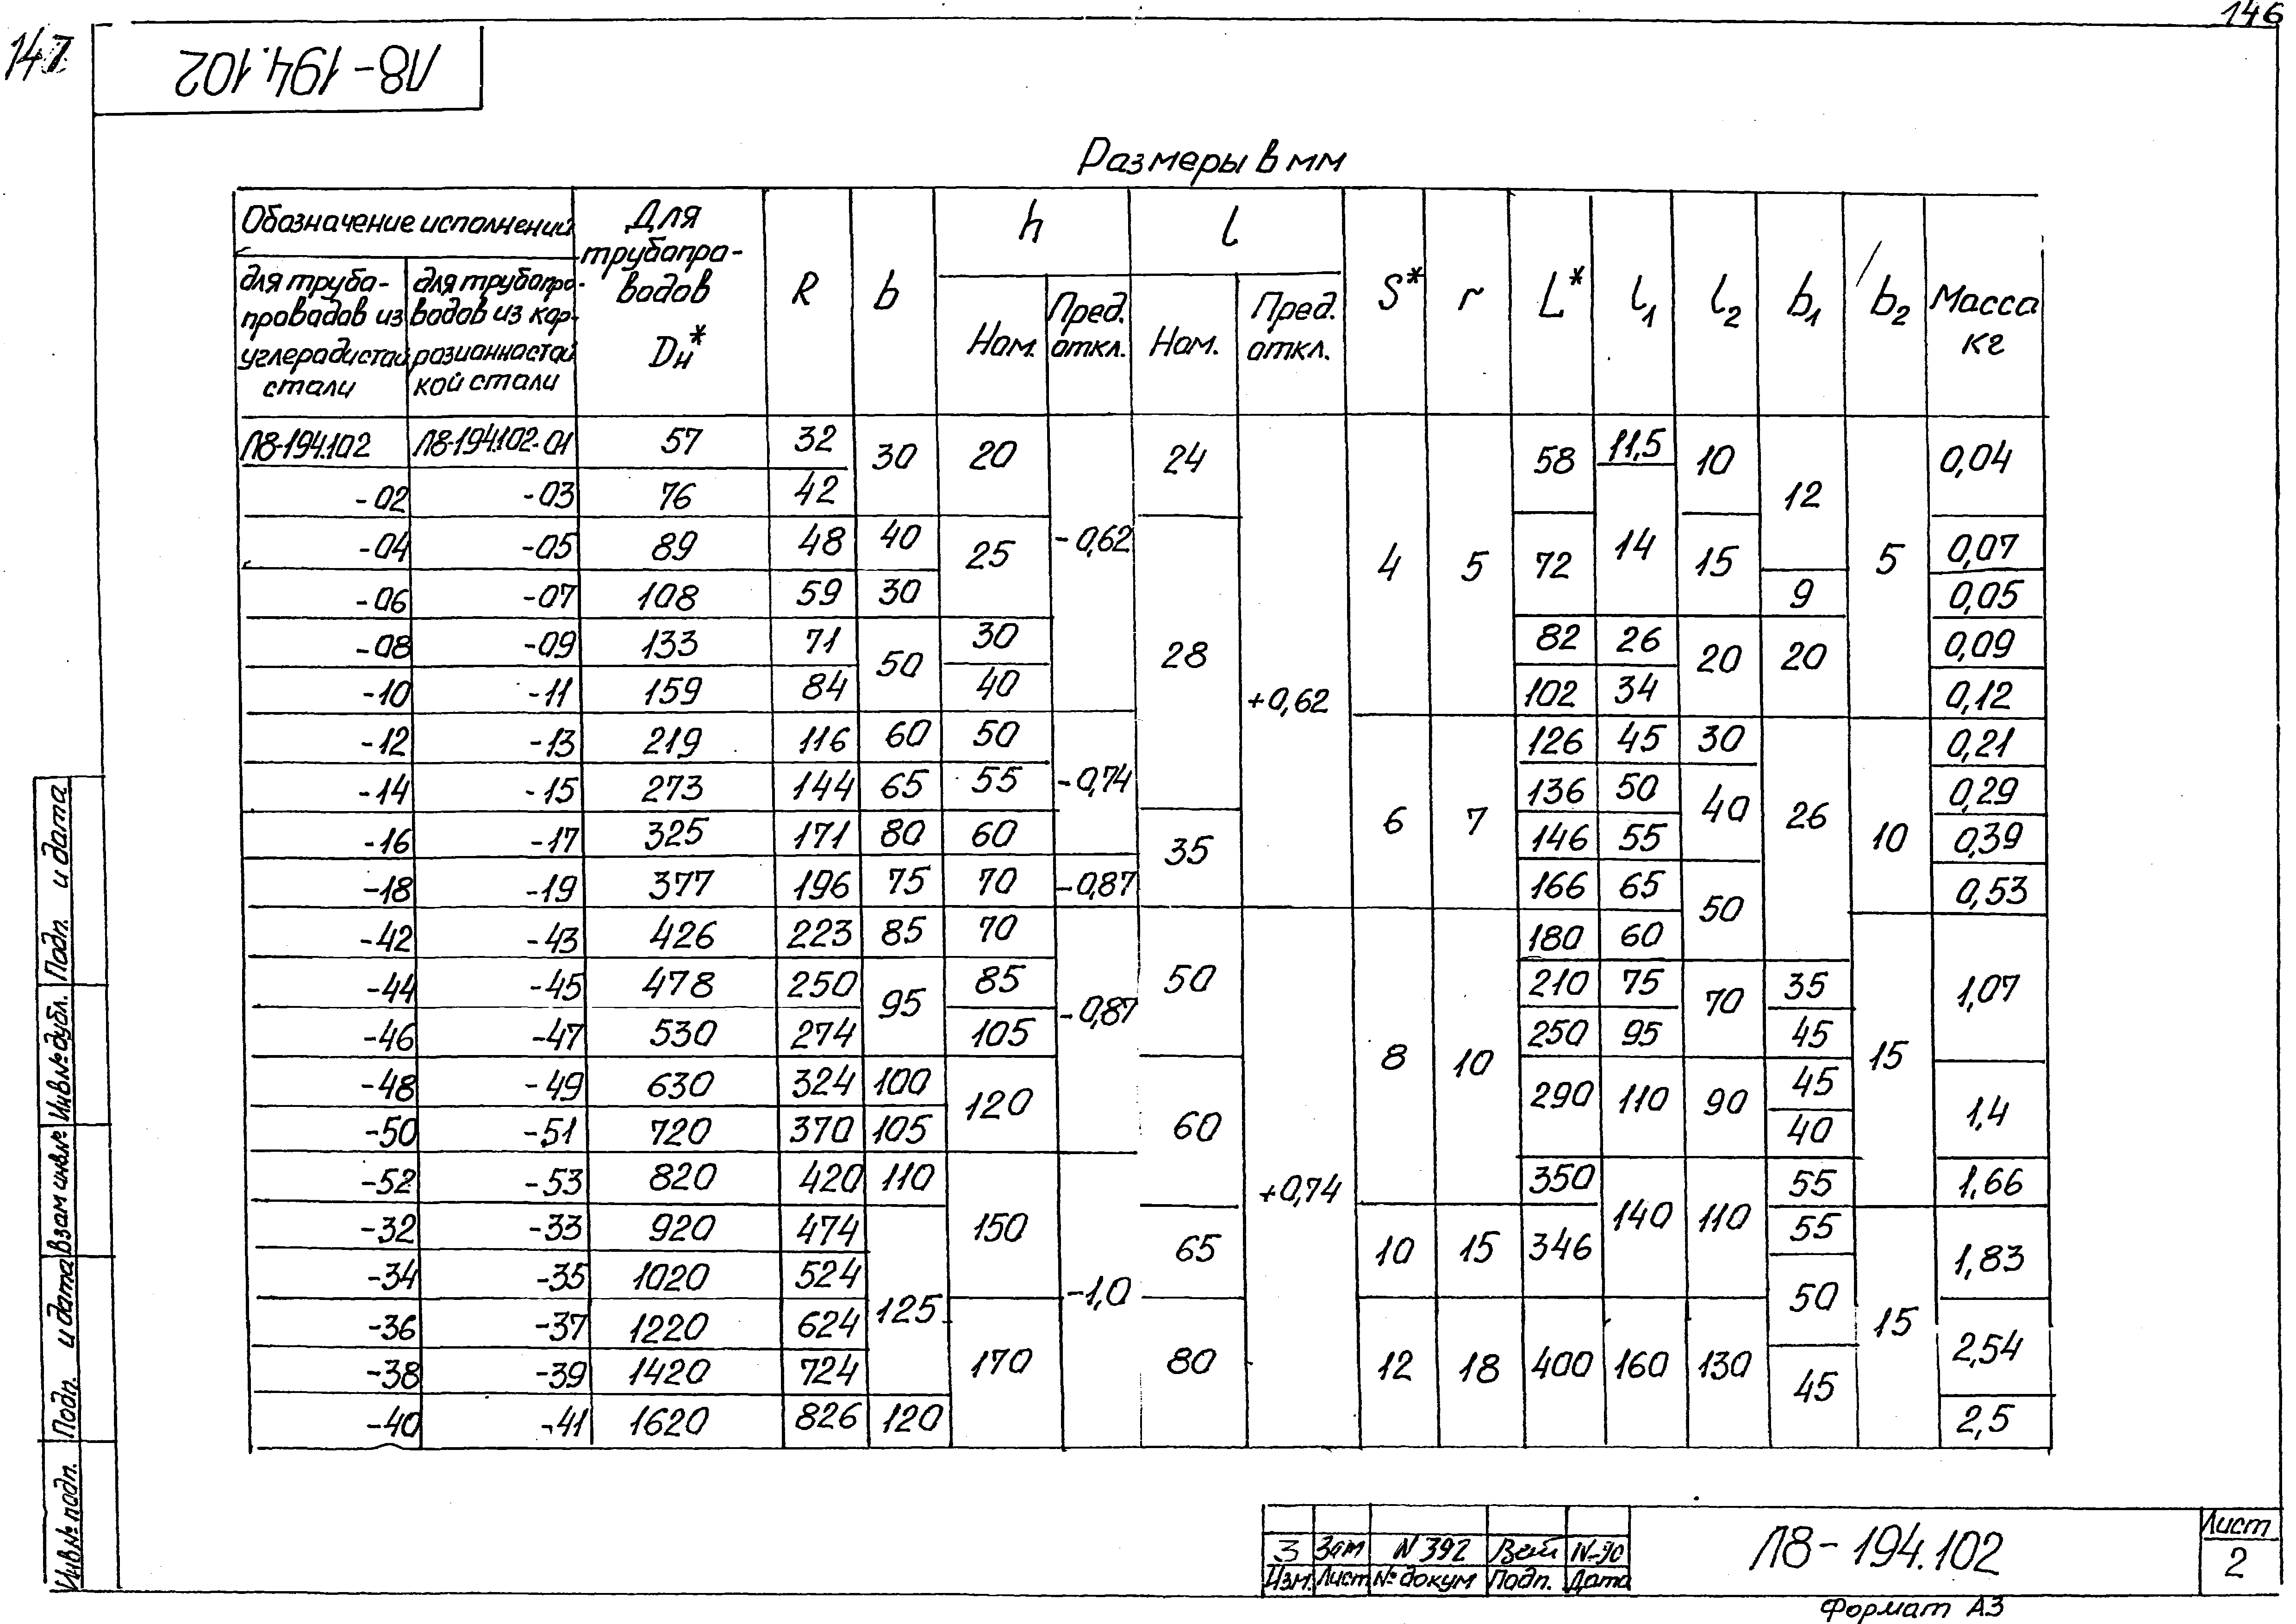 146
147
Л8-194.102
Размеры в мм
Обозначение исполнений
для трубопроводов из углеродистой стали
для трубопроводов из коррозионностойкой стали
Для трубопроводов Dн*
R
b
h
Ном.
Пред. откл.
l
Ном.
Пред. откл.
S*
r
L*
l1
l2
b1
b2
Масса кг
Л8-194.102 Л8-194.102-01 57 32 30 20 -0,62 24 +0,62 4 5 58 11,5 10 12 5 0,04
-02 -03 76 42 14
-04 -05 89 48 40 25 28 72 15 0,07
-06 -07 108 59 30 9 0,05
-08 -09 133 71 50 30 82 26 20 20 0,09
-10 -11 159 84 40 102 34 0,12
-12 -13 219 116 60 50 -0,74 6 7 126 45 30 26 10 0,21
-14 -15 273 144 65 55 136 50 40 0,29
-16 -17 325 171 80 60 35 146 55 0,39
-18 -19 377 196 75 70 -0,87 166 65 50 0,53
-42 -43 426 223 85 70 -0,87 50 +0,74 8 10 180 60 15 1,07
-44 -45 478 250 95 85 210 75 70 35
-46 -47 530 274 105 250 95 45
-48 -49 630 324 100 120 60 290 110 90 45 1,4
-50 -51 720 370 105 40
-52 -53 820 420 110 150 -1,0 350 140 110 55 1,66
-32 -33 920 474 125 65 10 15 346 55 15 1,83
-34 -35 1020 524 50
-36 -37 1220 624 170 80 12 18 400 160 130 2,54
-38 -39 1420 724 45
-40 -41 1620 826 120 2,5
Подп. и дата
Инв № дубл.
Взам инв. №
Подп. и дата
Инв № подп.
3 Зам N 392
Изм. Лист № докум Подп. Дата
Л8-194.102
Лист
2
Формат А3